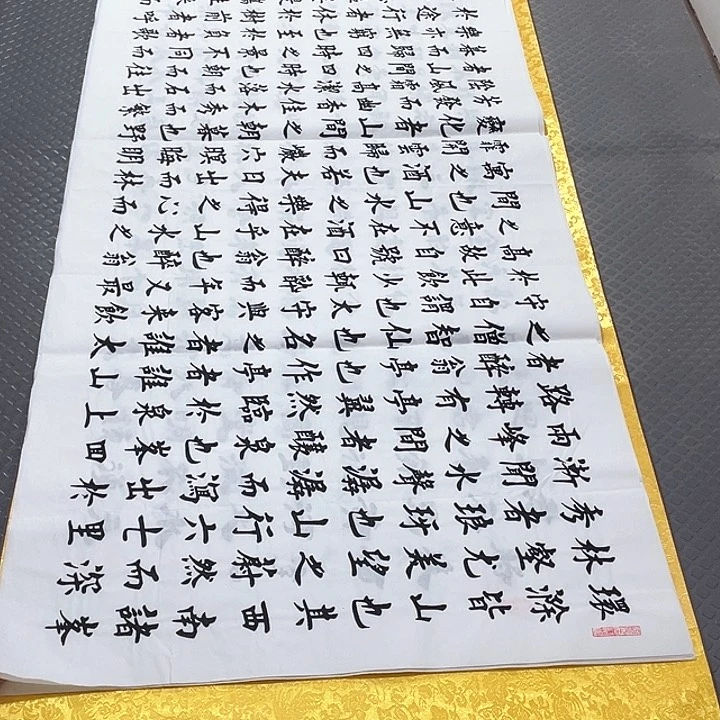 環滁皆山也其西南諸峯
林壑尤美望之蔚然而深
秀者琅玡也山行六七里
漸聞水聲潺潺而瀉出於
兩峰之間者釀泉也峯回
路轉有亭翼然臨泉上
者醉翁亭也作亭者誰山
之僧智仙也名之者誰太
守自謂也太守與客來飲
於此飲少輒醉而年又最
高故自號曰醉翁也醉翁
之意不在酒在乎山水之
間也山水之樂得之心而
寓之酒也若夫日出而林
霏開雲歸而穴暝晦明
變化者山間之朝暮也野
芳發而幽香佳木秀而繁
陰風霜高潔水落而石出
者山間之四時也朝而往
暮而歸四時之景不同而
樂亦無窮也至於負者歌
於途行者休於樹前者呼